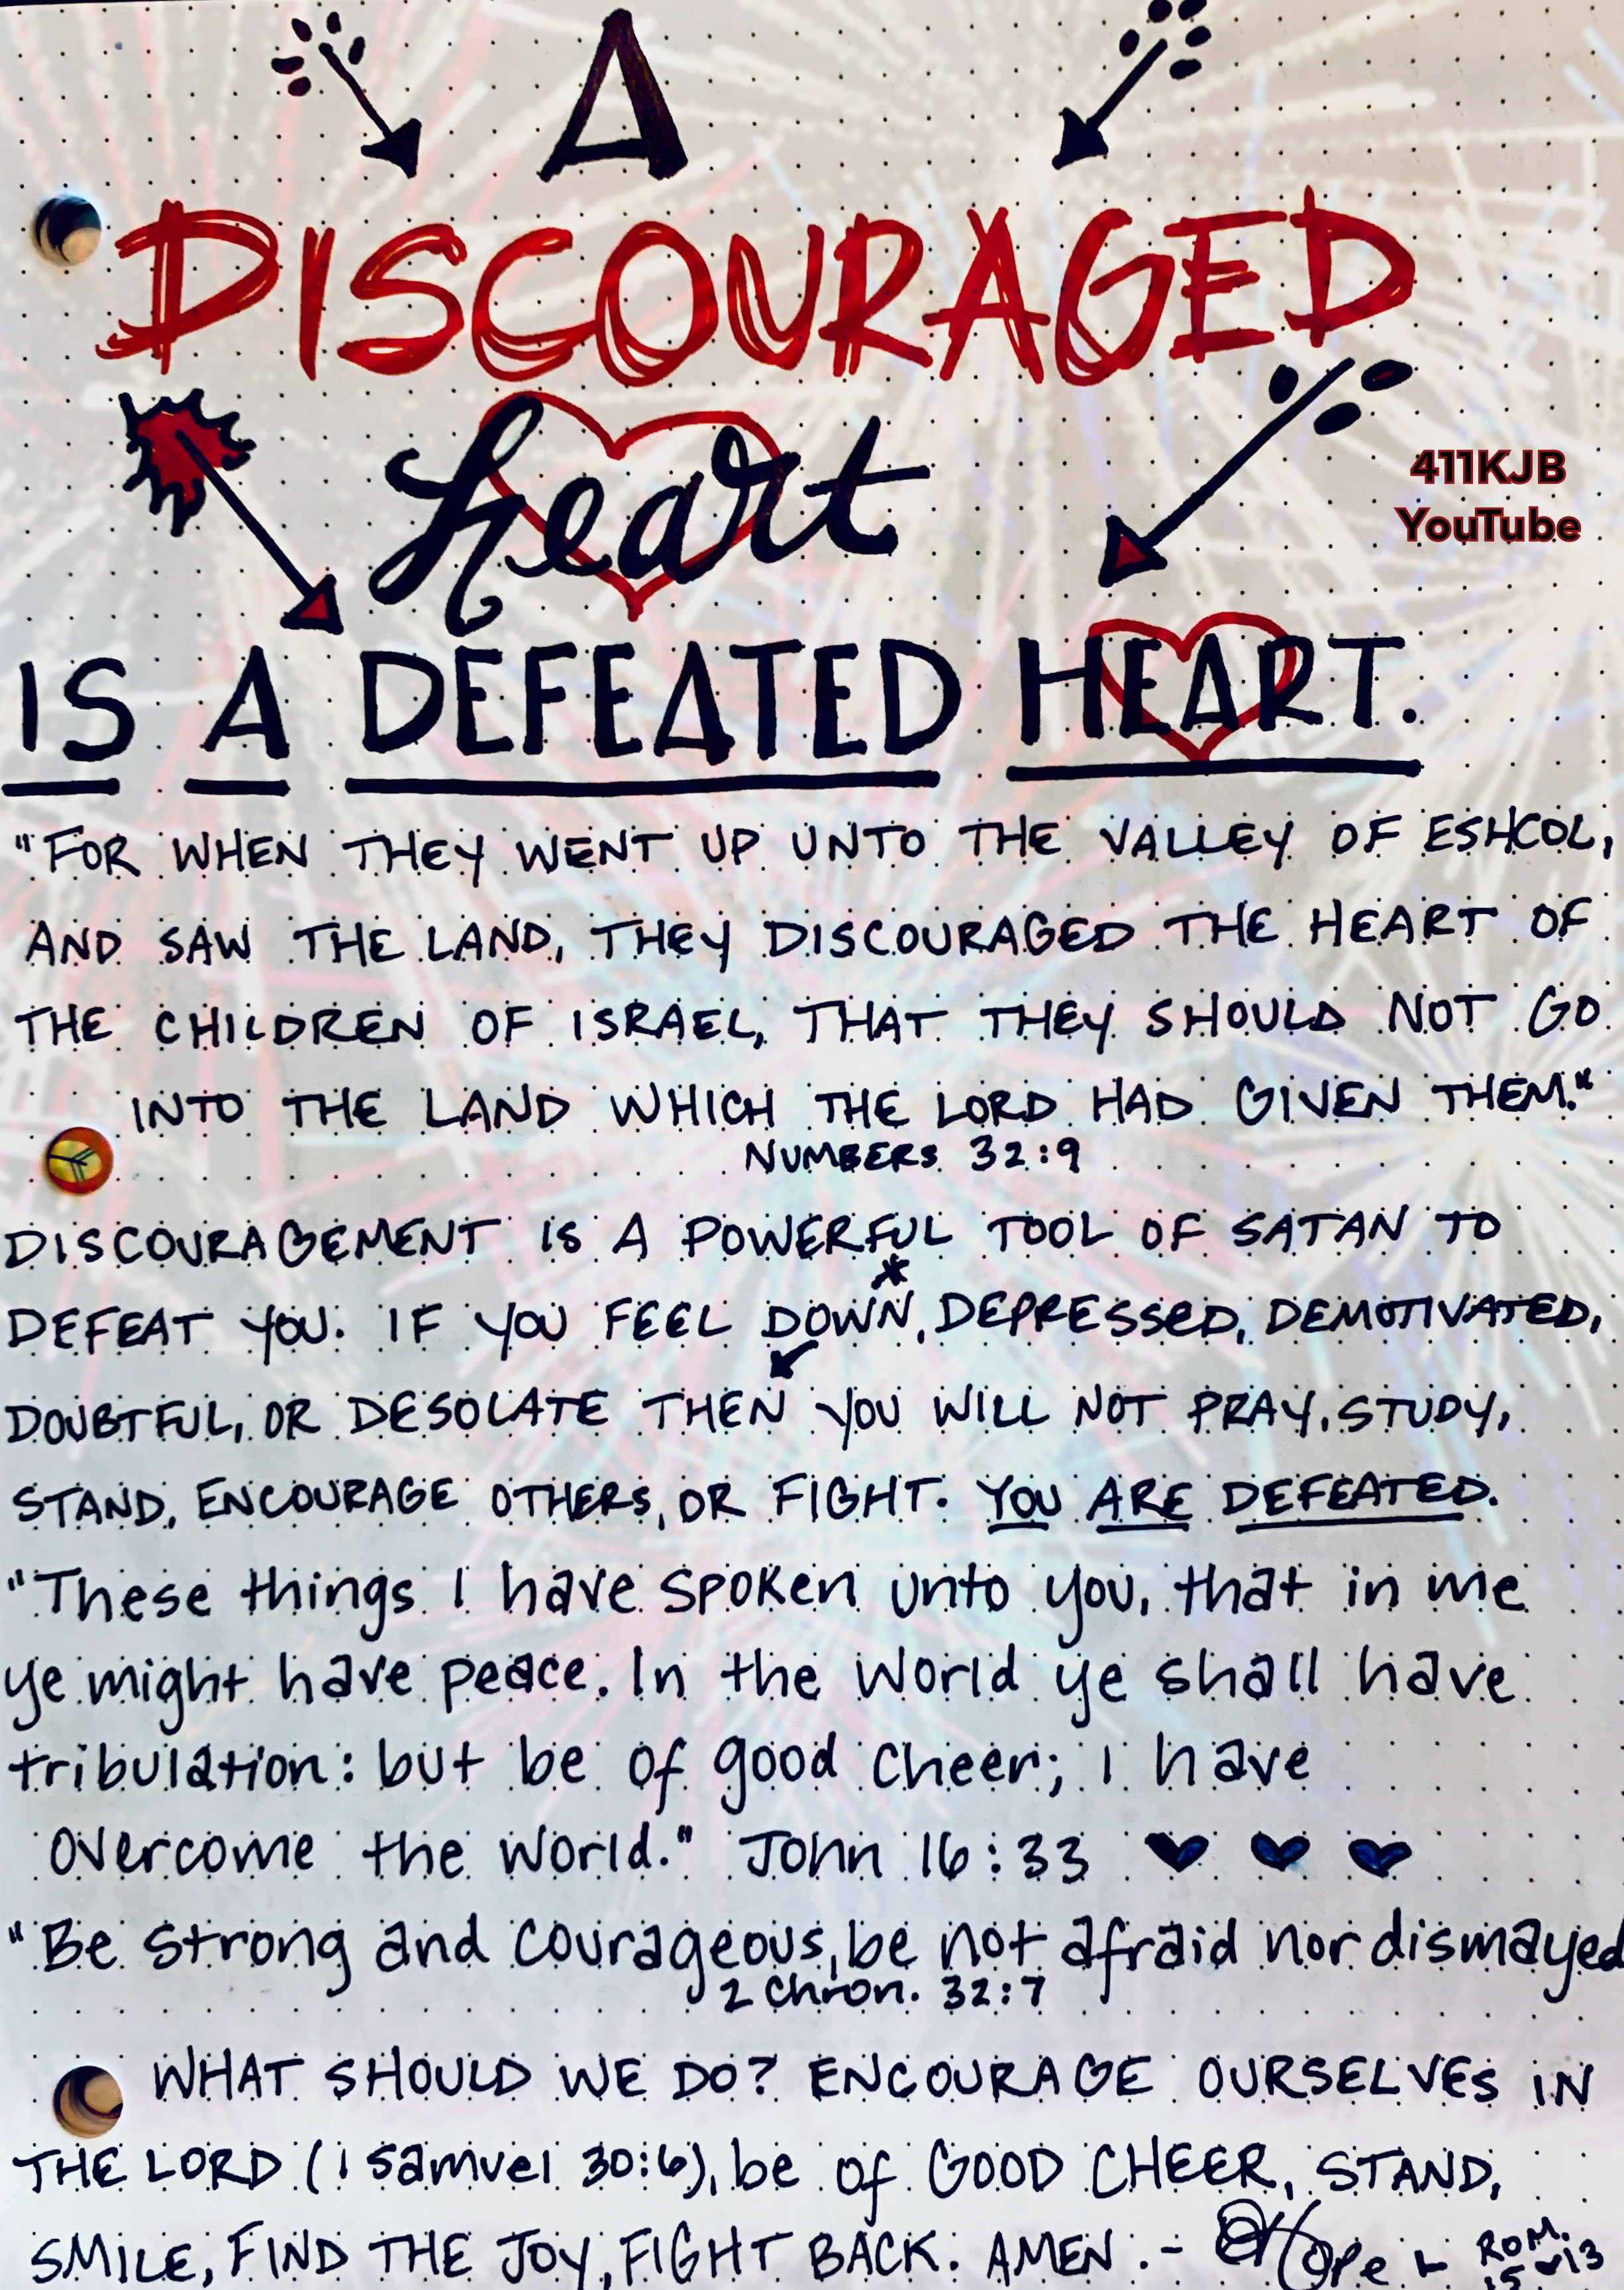 A
DISCOURAGED
heart
411KJB
YouTube
IS A DEFEATED HEART.
"FOR WHEN THEY WENT UP UNTO THE VALLEY OF ESHCOL,
AND SAW THE LAND, THEY DISCOURAGED THE HEART OF
THE CHILDREN OF ISRAEL, THAT THEY SHOULD NOT GO
INTO THE LAND WHICH THE LORD HAD GIVEN THEM."
NUMBERS 32:9
DISCOURAGEMENT IS A POWERFUL TOOL OF SATAN TO
DEFEAT YOU. IF YOU FEEL DOWN, DEPRESSED, DEMOTIVATED,
DOUBTFUL, OR DESOLATE THEN YOU WILL NOT PRAY, STUDY,
STAND, ENCOURAGE OTHERS, OR FIGHT. YOU ARE DEFEATED.
"These things I have spoken unto you, that in me
ye might have peace. In the world ye shall have
tribulation: but be of good cheer; I have
overcome the world." John 16:33
"Be strong and courageous, be not afraid nor dismayed
2 Chron. 32:7
WHAT SHOULD WE DO? ENCOURAGE OURSELVES IN
THE LORD (1 Samuel 30:6), be of GOOD CHEER, STAND,
SMILE, FIND THE JOY, FIGHT BACK. AMEN. - Hope L ROM.
15 13